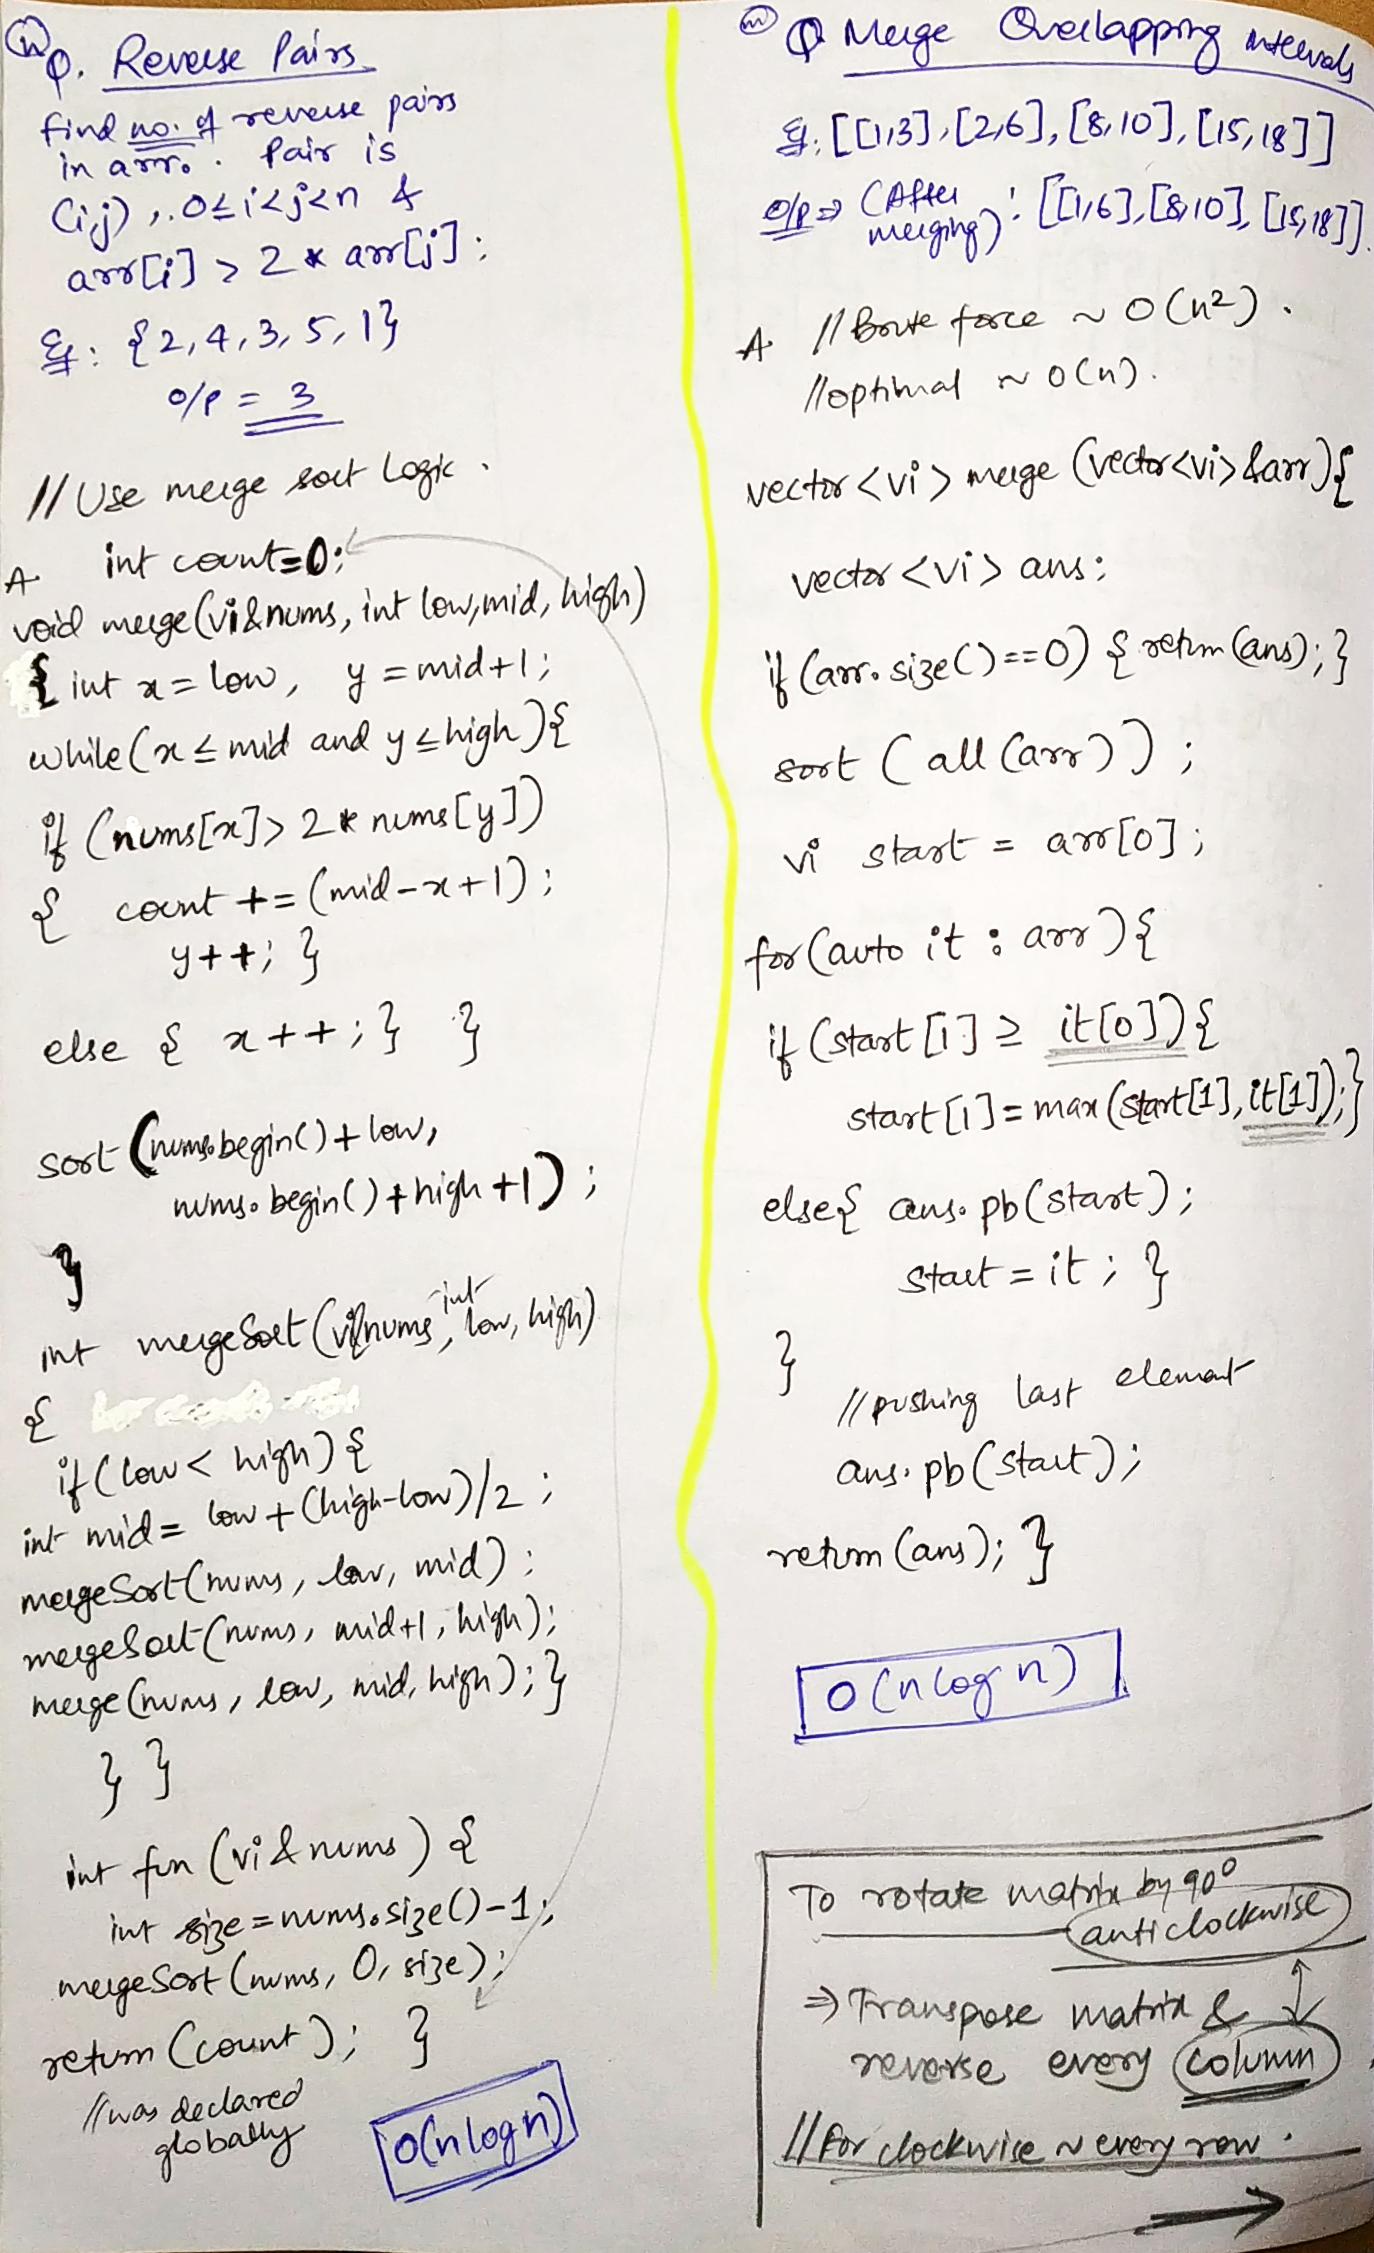 (h) Q. Reverse Pairs
find no. of reverse pairs
in arr. Pair is
(i,j), 0≤i<j<n &
arr[i] > 2 * arr[j];
Eg: {2,4,3,5,1}
o/p = 3
// Use merge sort logic.
A int count=0;
void merge(vi&nums, int low,mid, high)
{ int x = low, y = mid+1;
while(x ≤ mid and y ≤ high){
if (nums[x]> 2* nums[y])
{ count += (mid-x+1);
y++; }
else { x++;} }
sort (nums.begin()+low,
nums.begin()+high+1);
}
int mergeSort(vi&nums, int low, high)
{
if(low < high){
int mid = low + (high-low)/2;
mergeSort(nums, low, mid);
mergeSort(nums, mid+1, high);
merge(nums, low, mid, high);}
} }
int fun (vi & nums) {
int size = nums.size()-1;
mergeSort (nums, 0, size);
return (count); }
//was declared
globally
O(nlogn)
(m) Q Merge Overlapping intervals
Eg: [[1,3],[2,6],[8,10],[15,18]]
o/p ⇒ (After merging): [[1,6],[8,10],[15,18]].
A // Brute force ~ O(n²).
//optimal ~ O(n).
vector<vi> merge (vector<vi>&arr){
vector<vi> ans;
if (arr.size()==0) { return(ans);}
sort (all(arr));
vi start = arr[0];
for(auto it : arr){
if (start[1] ≥ it[0]){
start[1]=max(start[1],it[1]);}
else{ ans.pb(start);
start = it; }
}
//pushing last element
ans.pb(start);
return (ans); }
O(nlogn)
To rotate matrix by 90°
anticlockwise
⇒ Transpose matrix &
reverse every column.
// For clockwise ~ every row.